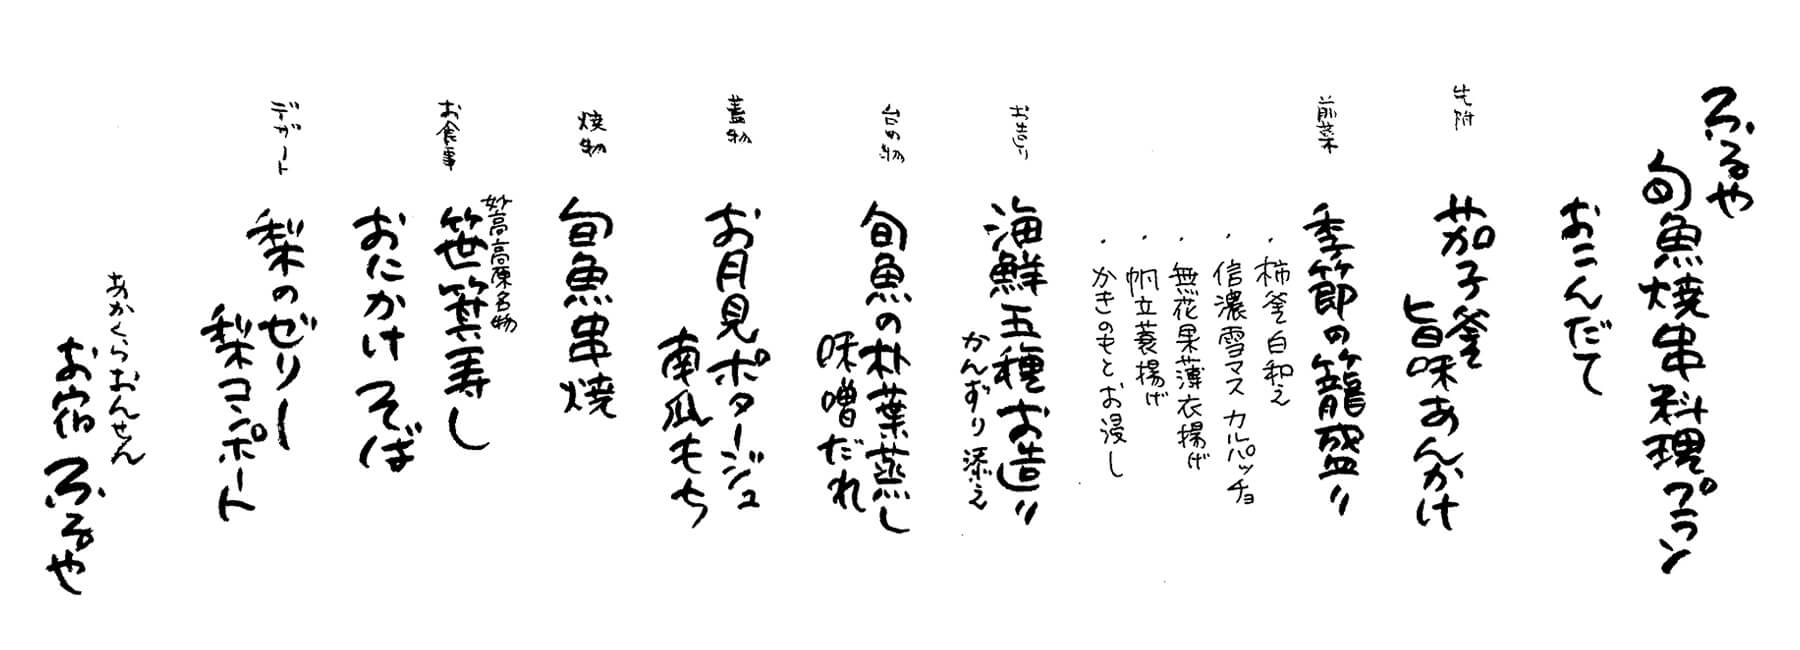 ふるや
旬魚焼串料理プラン
おこんだて
先附
茄子釜
旨味あんかけ
前菜
季節の籠盛り
・柿釜白和え
・信濃雪マスカルパッチョ
・無花果薄衣揚げ
・帆立蓑揚げ
・かきのもとお浸し
お造り
海鮮五種お造り
かんずり添え
台の物
旬魚の朴葉蒸し
味噌だれ
蓋物
お月見ポタージュ
南瓜もち
焼物
旬魚串焼
お食事
妙高高原名物
笹笋寿し
おたかけそば
デザート
梨のゼリー
梨コンポート
あかくらおんせん
お宿ふるや